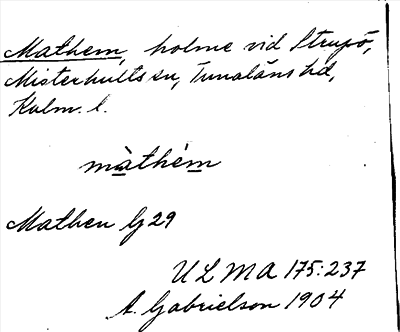 Mathem, holme vid Strupö,
Misterhults sn, Tunaläns hd,
Kalm. l.
màthém
Mathen G 29
ULMA 175:237
A. Gabrielson 1904